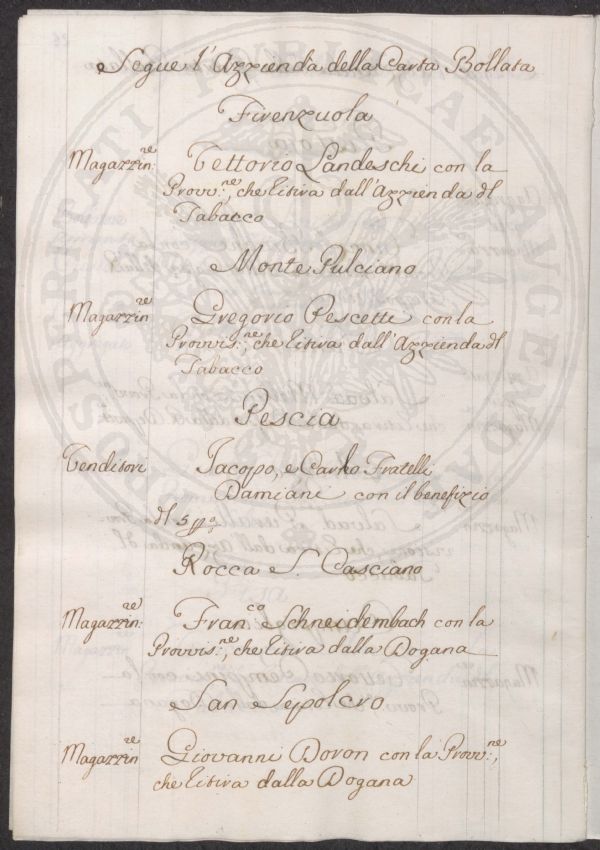 Segue l'Azzienda della Carta Bollata
Firenzuola
Magazzin:re Vettorio Landeschi con la
Provv:ne, che titira dall'Azzienda dl
Tabacco
Monte Pulciano
Magazzinre Gregorio Pescetti con la
Provvis:ne, che titira dall'Azzienda dl
Tabacco
Pescia
Venditori Jacopo, e Carlo Fratelli
Damiani con il benefizio
dl 5
Rocca S. Casciano
Magazzin:re Fran:co Schneidembach con la
Provvis:ne, che titira dalla Dogana
San Sepolcro
Magazzinre Giovanni Doron con la Provv:ne,
che titira dalla Dogana
PROSPERITATI PUBLICAE AUGENDAE